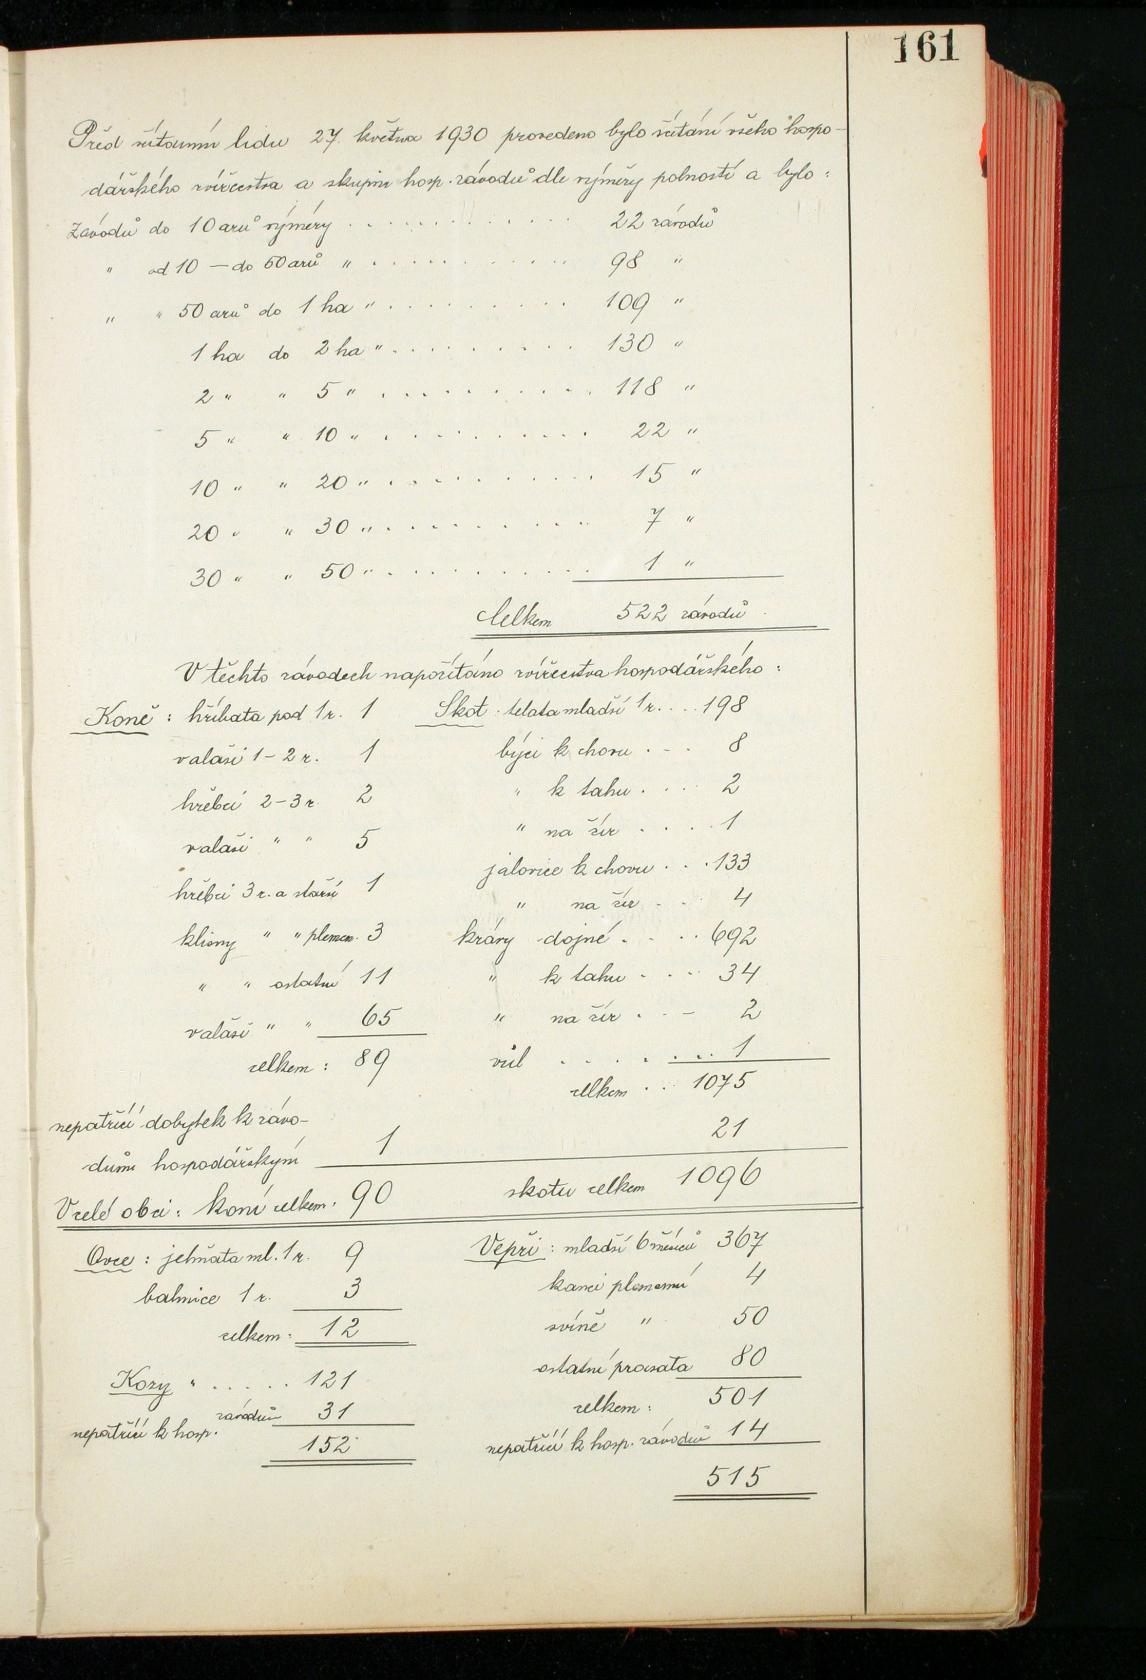 161
Před sčítáním lidu 27. května 1930 provedeno bylo sčítání všeho hospo-
dářského zvířectva a skupin hosp. závodů dle výměry polností a bylo:
Závodů do 10 arů výměry . . . . . . . . . . 22 závodů
" od 10 — do 50 arů " . . . . . . . . . . 98 "
" " 50 arů do 1 ha " . . . . . . . . . 109 "
1 ha do 2 ha " . . . . . . . . . 130 "
2 " " 5 " . . . . . . . . . . 118 "
5 " " 10 " . . . . . . . . . 22 "
10 " " 20 " . . . . . . . . . . 15 "
20 " " 30 " . . . . . . . . . . 7 "
30 " " 50 " . . . . . . . . . . 1 "
Celkem 522 závodů
V těchto závodech napočítáno zvířectva hospodářského:
Koně: hříbata pod 1 r. 1
valáši 1–2 r. 1
hřebci 2–3 r. 2
valáši " " 5
hřebci 3 r. a starší 1
klisny " " plemen. 3
" " ostatní 11
valáši " " 65
celkem: 89
nepatřící dobytek k závo-
dům hospodářským 1
V celé obci: koní celkem: 90
Skot telata mladší 1 r. . . . 198
býci k chovu . - . 8
" k tahu . . . . 2
" na žír . . . . 1
jalovice k chovu . . . 133
" na žír - . . 4
krávy dojné . - . . 692
" k tahu - . . - 34
" na žír . . - 2
vůl . . . . . . . 1
celkem . . . 1075
21
skotu celkem 1096
Ovce: jehňata ml. 1 r. 9
bahnice 1 r. 3
celkem: 12
Kozy " . . . . . 121
nepatřící k hosp. závodům 31
152
Vepři: mladší 6 měsíců 367
kanci plemenní 4
svině " 50
ostatní prasata 80
celkem: 501
nepatřící k hosp. závodům 14
515